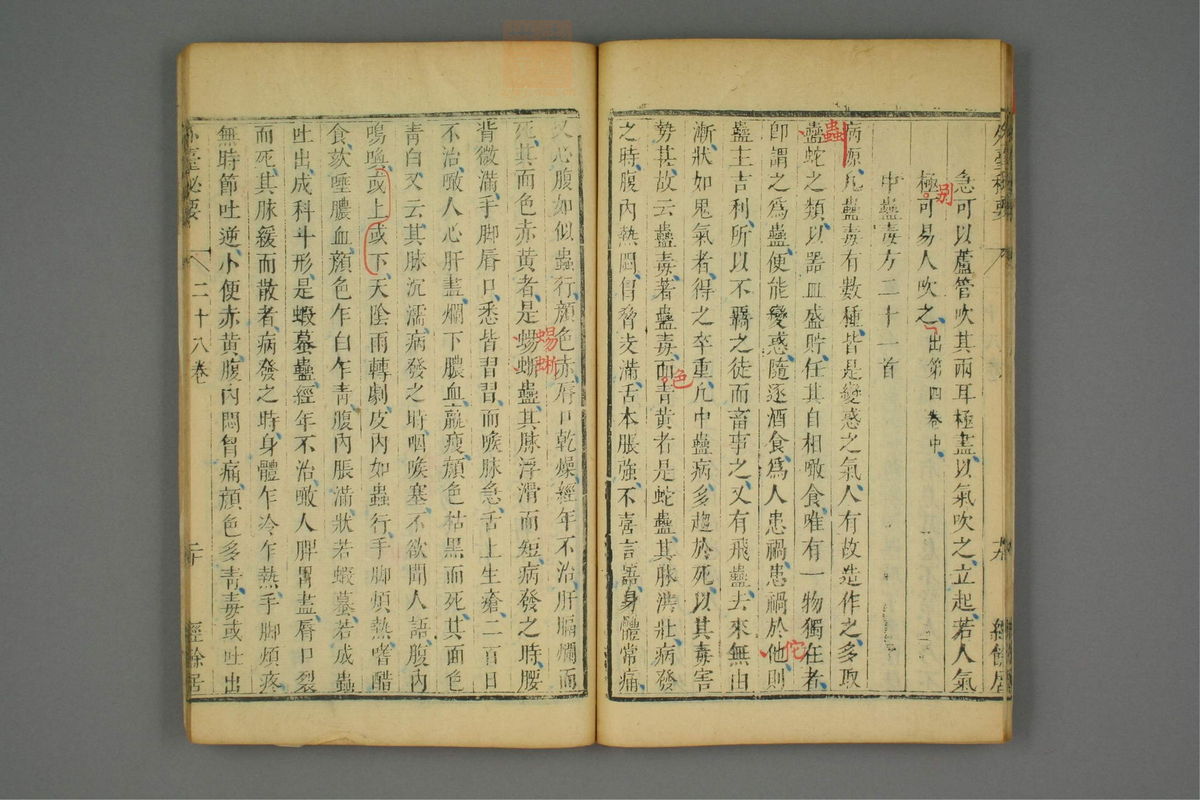 外臺秘要
九
經餘居
急可以蘆管吹其兩耳極盡以氣吹之立起若人氣
極可易人吹之出第四卷中
別
中蠱毒方二十一首
病源凡蠱毒有數種皆是變惑之氣人有故造作之多取
蠱蛇之類以器皿盛貯任其自相噉食唯有一物獨在者
蟲
即謂之為蠱便能變惑隨逐酒食為人患禍患禍於他則
佗
蠱主吉利所以不羈之徒而畜事之又有飛蠱去來無由
漸狀如鬼氣者得之卒重凡中蠱病多趨於死以其毒害
勢甚故云蠱毒著蠱毒而青黃者是蛇蠱其脉洪壯病發
色
之時腹內熱悶胷脅支滿舌本脹強不喜言語身體常痛
又心腹如似蟲行顏色赤唇口乾燥經年不治肝膈爛而
死其面色赤黃者是蜴蜥蠱其脉浮滑而短病發之時腰
蜴蜥
背微滿手脚唇口悉皆習習而喉脉急舌上生瘡二百日
不治噉人心肝盡爛下膿血羸瘦顏色枯黑而死其面色
青白又云其脉沉濡病發之時咽喉塞不欲聞人語腹內
鳴喚或上或下天陰雨轉劇皮內如蟲行手脚煩熱嗜醋
食欬唾膿血顏色乍白乍青腹內脹滿狀若蝦蟇若成蟲
吐出成科斗形是蝦蟇蠱經年不治噉人脾胃盡唇口裂
而死其脉緩而散者病發之時身體乍冷乍熱手脚煩疼
無時節吐逆小便赤黃腹內悶胷痛顏色多青毒或吐出
外臺秘要
二十八卷
二十
經餘居